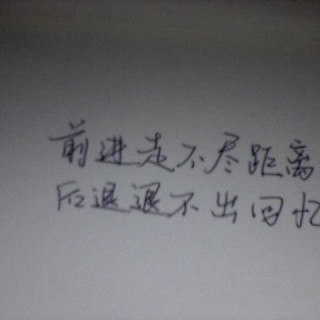 前进走不尽距离
后退退不出回忆